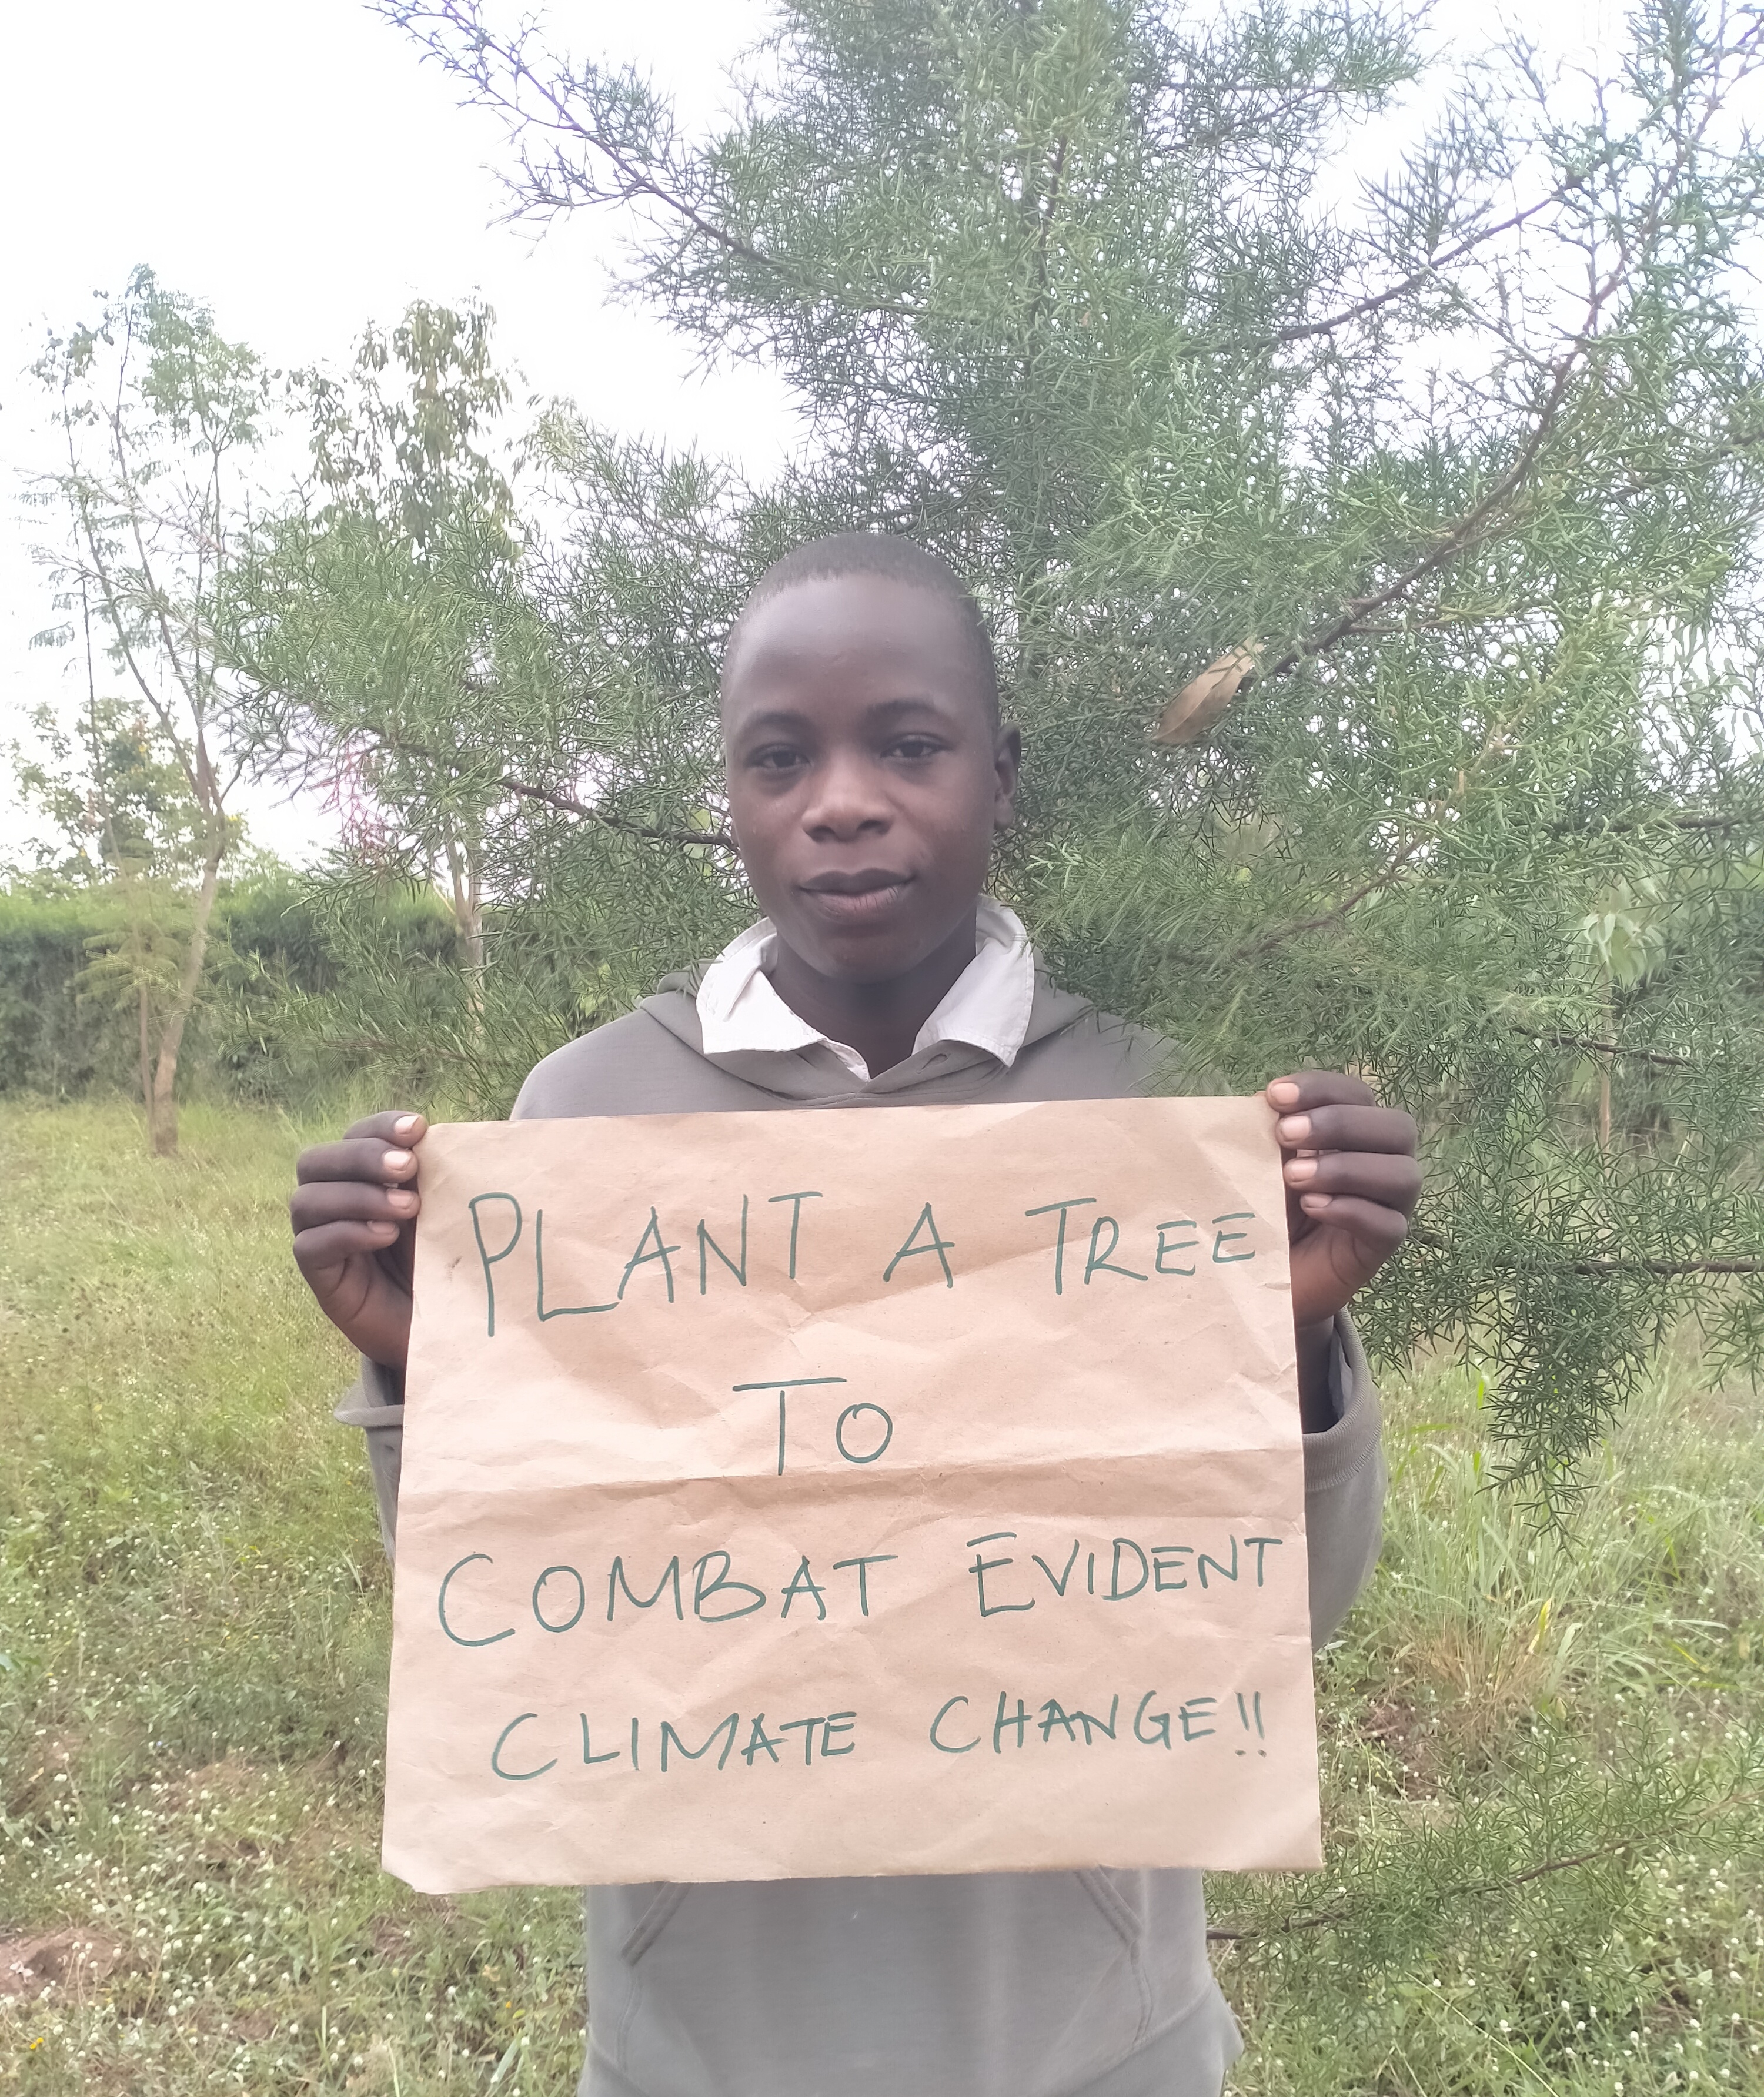 PLANT A TREE
TO
COMBAT EVIDENT
CLIMATE CHANGE!!